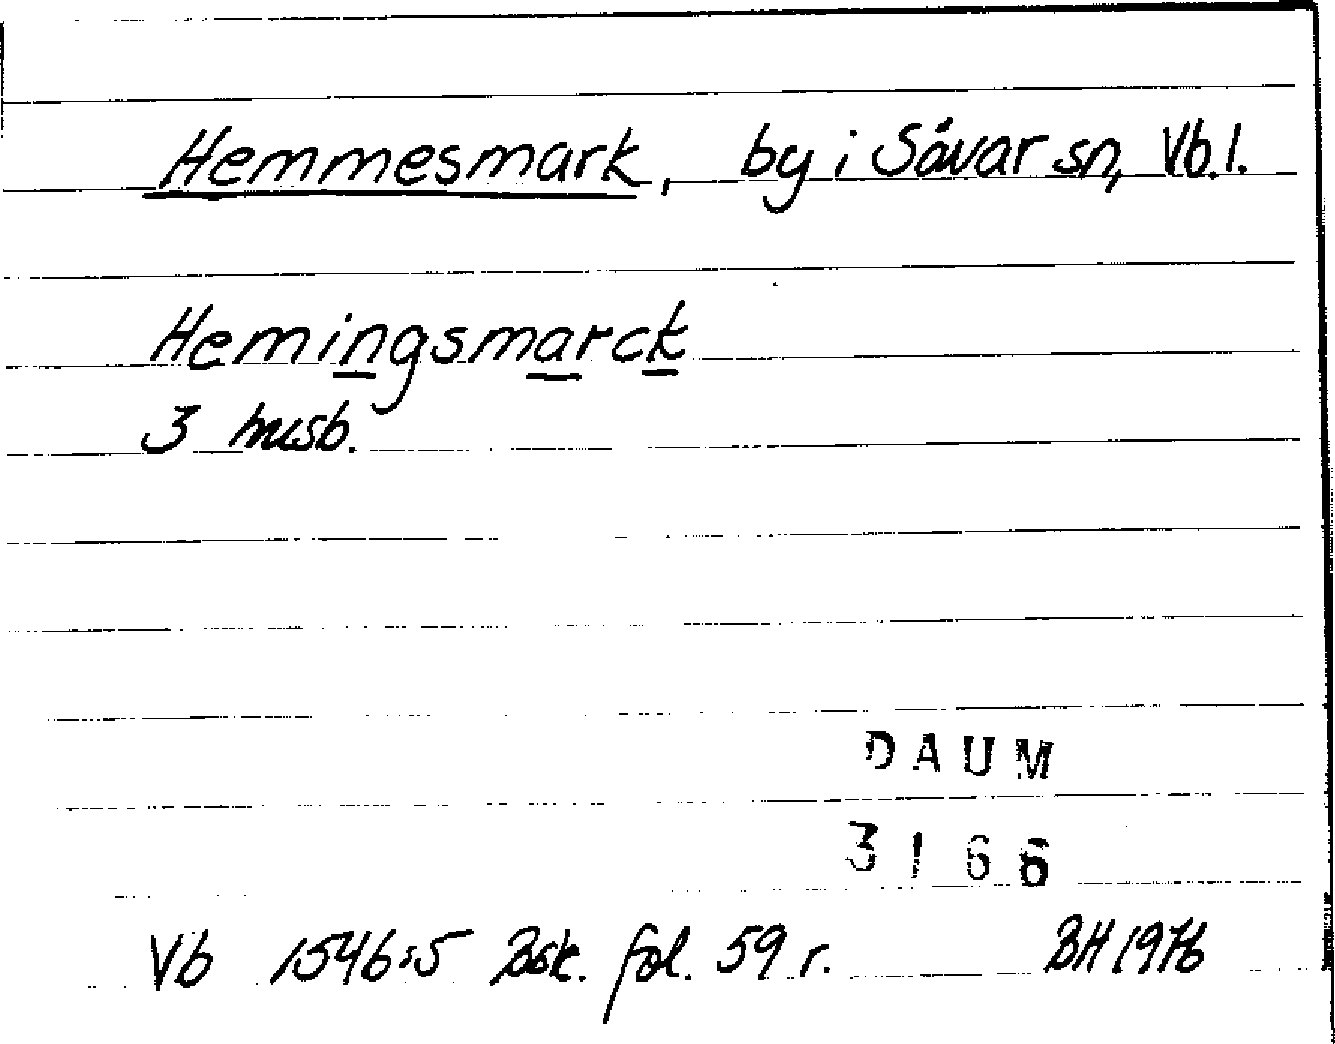 Hemmesmark, by i Sävar sn, Vb.l.
Hemingsmarck
3 husb.
DAUM
3166
Vb 1546:5 Bsk. fol. 59 r. BH 1976